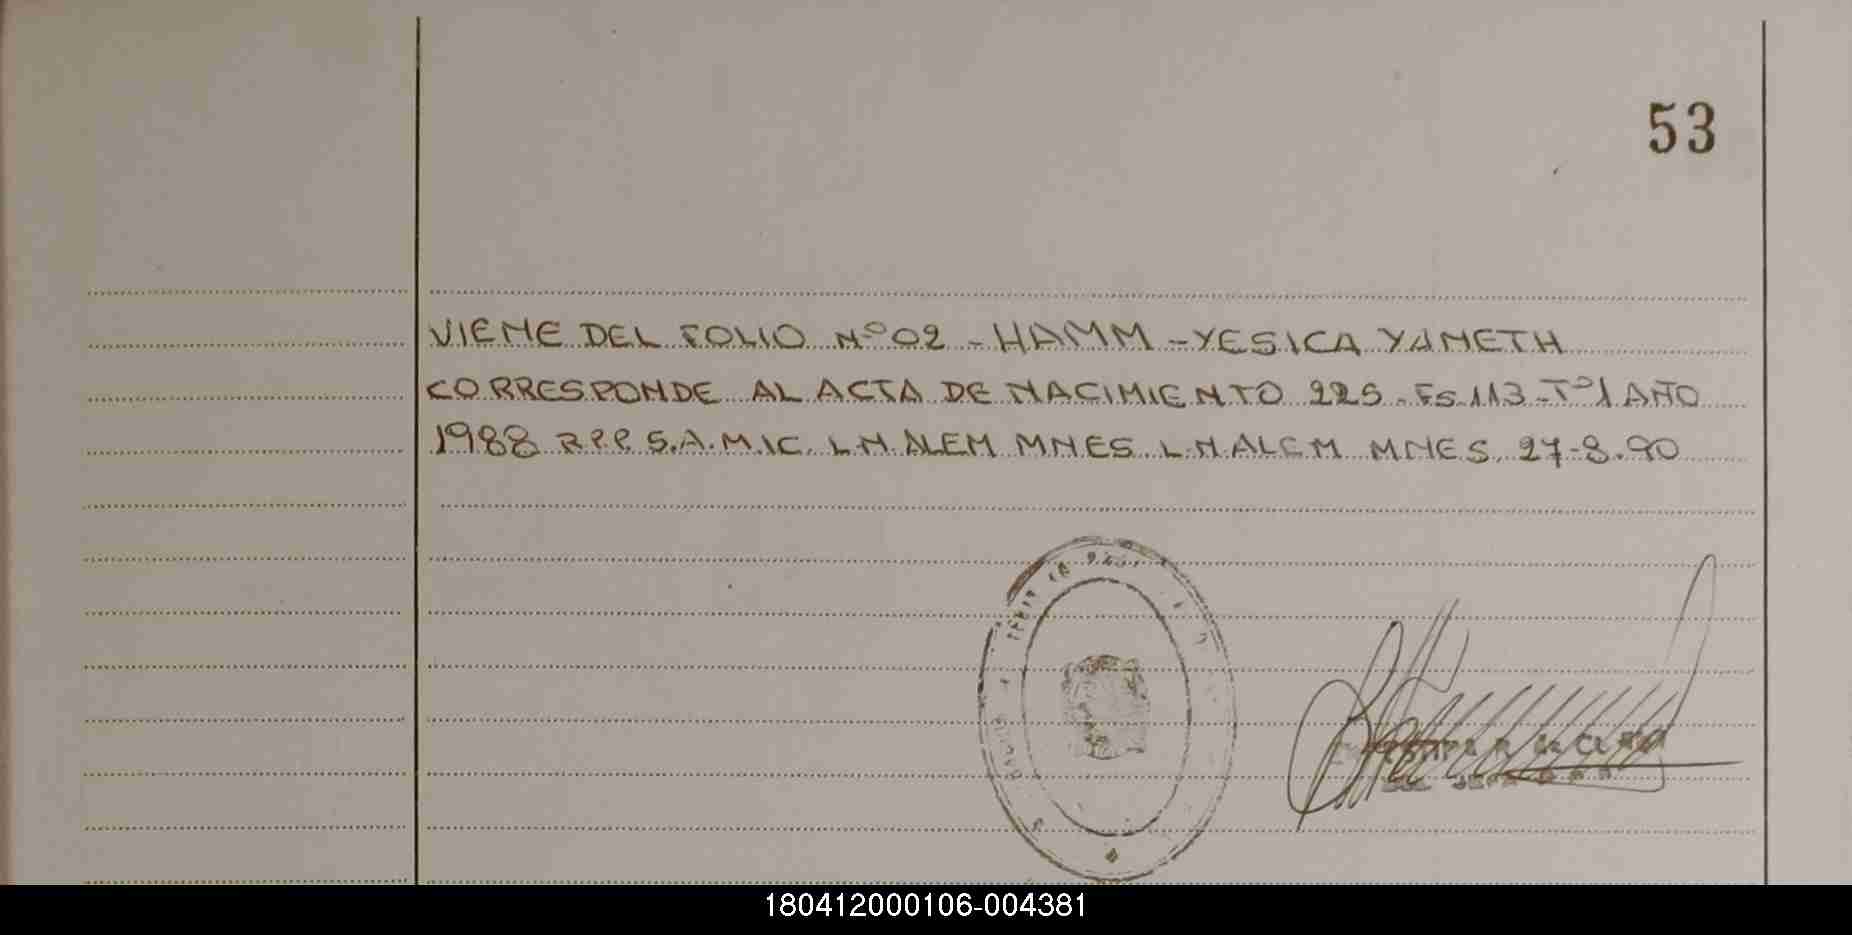 53
VIENE DEL FOLIO Nº 02 - HAMM - YESICA YANETH
CORRESPONDE AL ACTA DE NACIMIENTO 225 - Fs 113 - Tº 1 AÑO
1988 R.P.P. S.A.M.I.C. L.N. ALEM MNES. L.N. ALEM MNES. 27-8.90
180412000106-004381